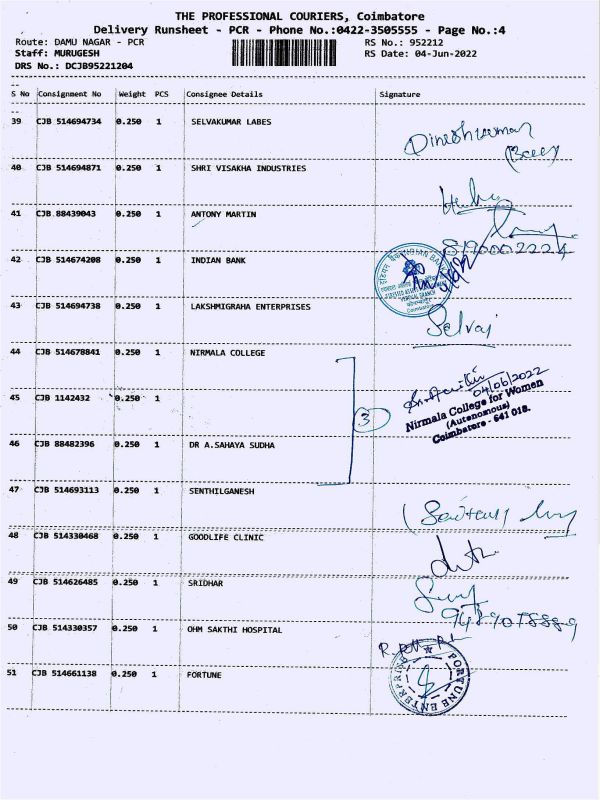 THE PROFESSIONAL COURIERS, Coimbatore
Delivery Runsheet - PCR - Phone No.:0422-3505555 - Page No.:4
Route: DAMU NAGAR - PCR RS No.: 952212
Staff: MURUGESH RS Date: 04-Jun-2022
DRS No.: DCJB95221204
S No Consignment No Weight PCS Consignee Details Signature
39 CJB 514694734 0.250 1 SELVAKUMAR LABES
Dineshkumar
40 CJB 514694871 0.250 1 SHRI VISAKHA INDUSTRIES
41 CJB 88439043 0.250 1 ANTONY MARTIN
8190002224
42 CJB 514674208 0.250 1 INDIAN BANK
INDIAN BANK
Coimbatore
43 CJB 514694738 0.250 1 LAKSHMIGRAHA ENTERPRISES
Selvaj
44 CJB 514678841 0.250 1 NIRMALA COLLEGE
04/06/2022
45 CJB 1142432 0.250 1
3
Nirmala College for Women
(Autonomous)
Coimbatore - 641 018.
46 CJB 88482396 0.250 1 DR A.SAHAYA SUDHA
47 CJB 514693113 0.250 1 SENTHILGANESH
48 CJB 514330468 0.250 1 GOODLIFE CLINIC
49 CJB 514626485 0.250 1 SRIDHAR
50 CJB 514330357 0.250 1 OHM SAKTHI HOSPITAL
51 CJB 514661138 0.250 1 FORTUNE
FORTUNE ENTERPRISES